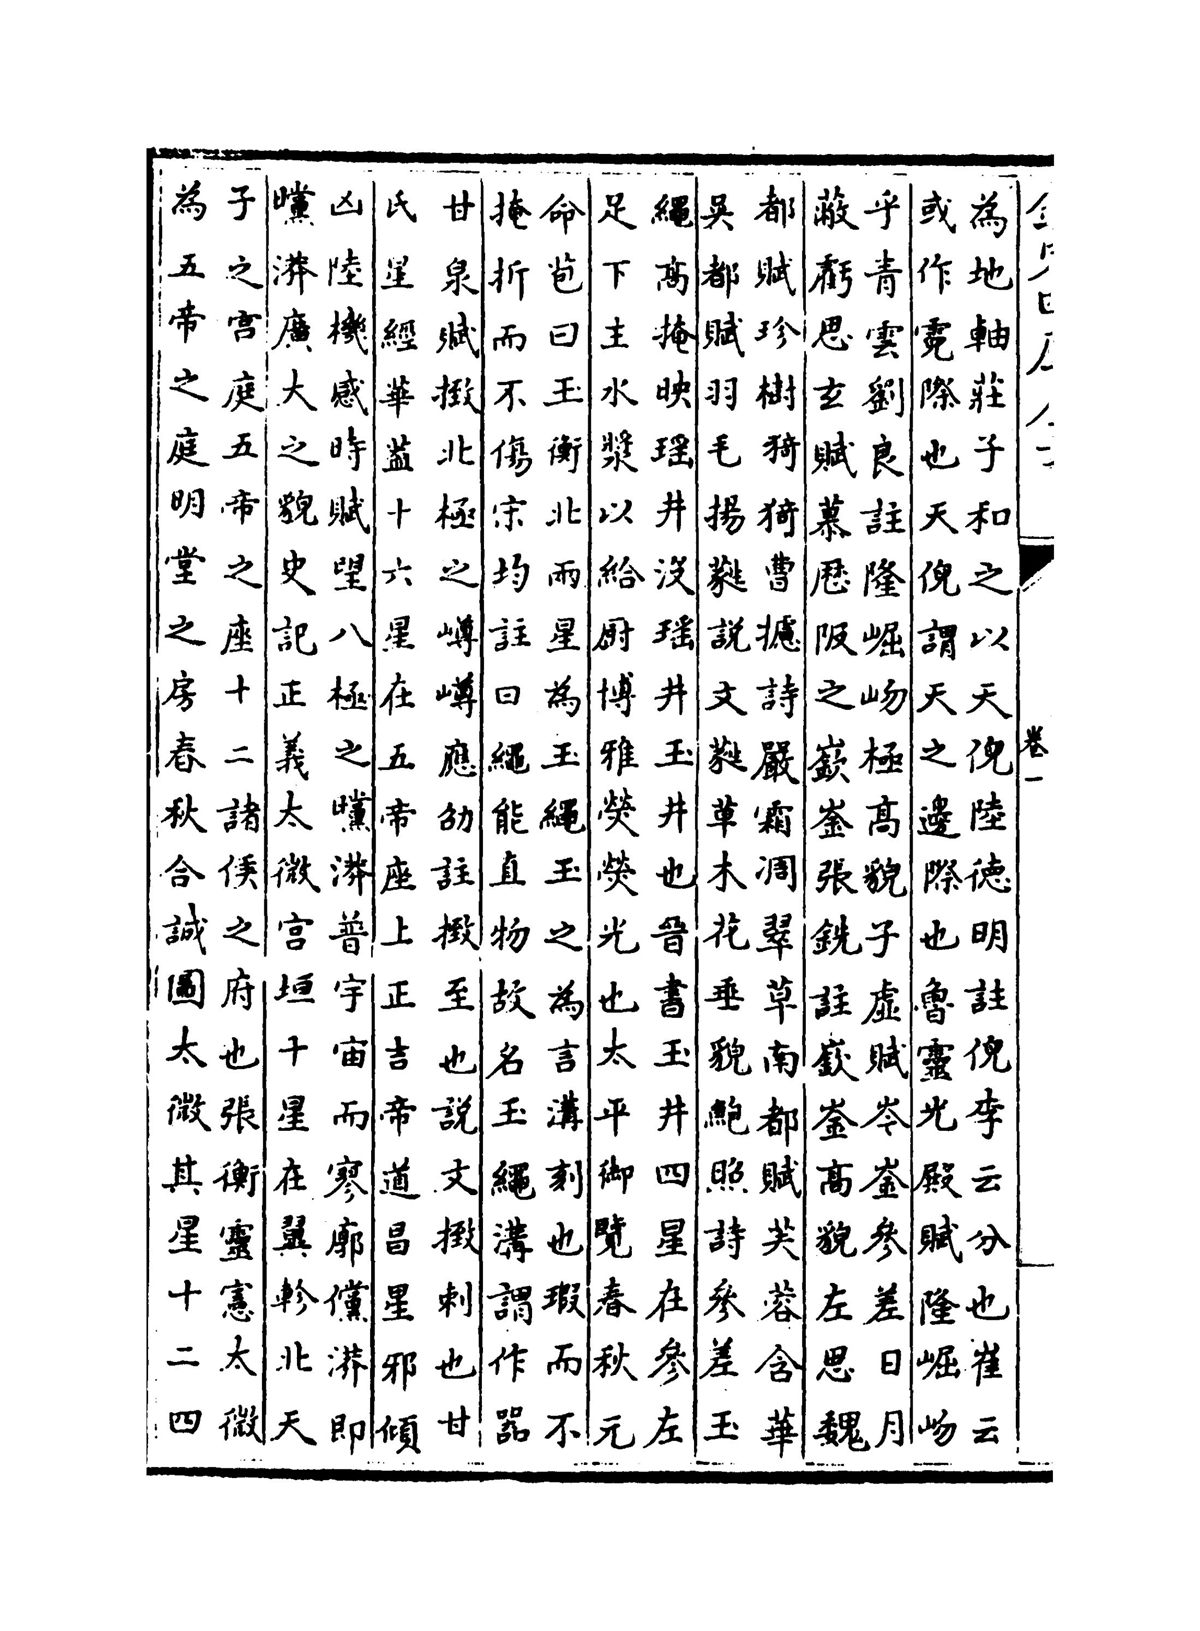 卷一
為地軸莊子和之以天倪陸德明註倪李云分也崔云
或作霓際也天倪謂天之邊際也魯靈光殿賦隆崛岉
乎青雲劉良註隆崛岉極高貌子虛賦岑崟參差日月
蔽虧思玄賦慕歷阪之嶔崟張銑註嶔崟高貌左思魏
都賦珍樹猗猗曹攄詩嚴霜凋翠草南都賦芙蓉含華
吳都賦羽毛揚蕤說文蕤草木花垂貌鮑照詩參差玉
繩高掩映瑶井没瑶井玉井也晉書玉井四星在參左
足下主水漿以給厨博雅熒熒光也太平御覽春秋元
命苞曰玉衡北兩星為玉繩玉之為言溝刻也瑕而不
掩折而不傷宋均註曰繩能直物故名玉繩溝謂作器
甘泉賦㨖北極之嶟嶟應劭註㨖至也說文㨖刺也甘
氏星經華葢十六星在五帝座上正吉帝道昌星邪傾
凶陸機感時賦望八極之曭漭普宇宙而寥廓儻漭即
曭漭廣大之貌史記正義太微宫垣十星在翼軫北天
子之宫庭五帝之座十二諸侯之府也張衡靈憲太微
為五帝之庭明堂之房春秋合誠圖太微其星十二四